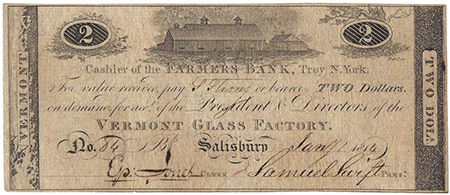 2 2
VERMONT
Cashier of the FARMERS BANK, Troy N. York.
For value received, pay or bearer, TWO Dollars
on demand, for acc. of the President & Directors of the
VERMONT GLASS FACTORY.
No. 84 Salisbury Jan 1814
CLERK Samuel Swift PRES.
TWO DOL.